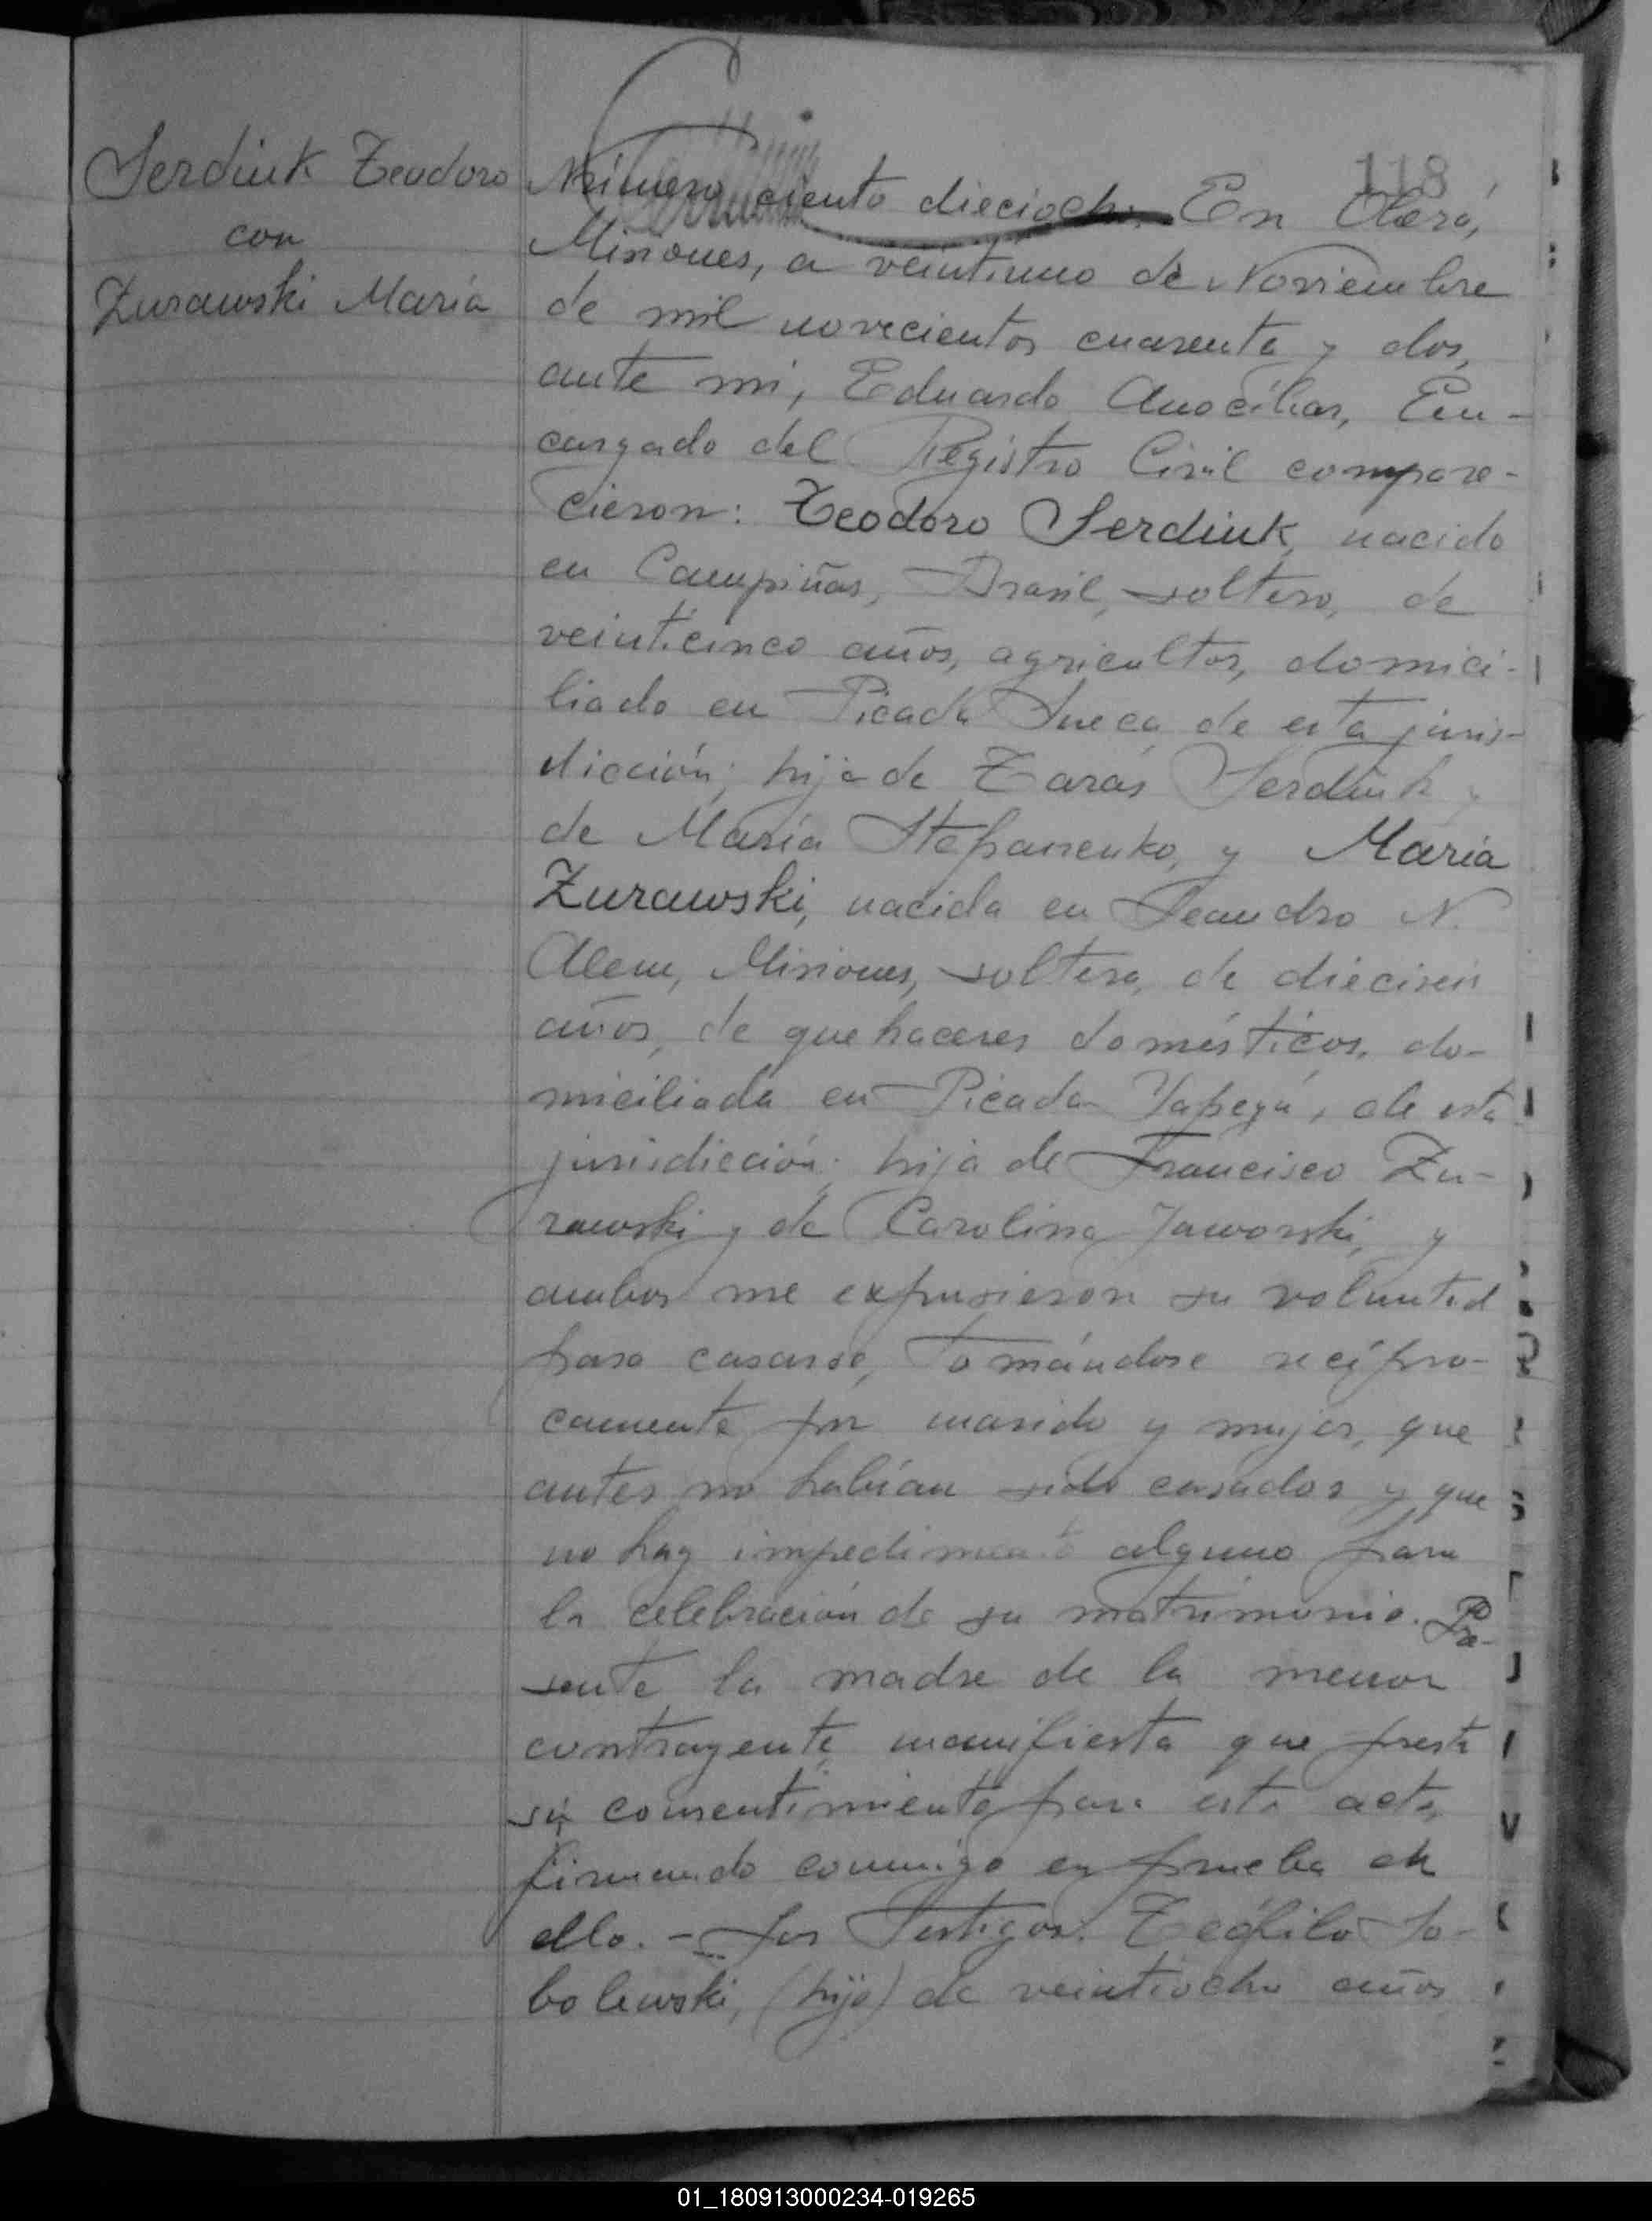 118
Serdiuk Teodoro
con
Zurawski María
Número ciento dieciocho. En Oberá,
Misiones, a veintiuno de Noviembre
de mil novecientos cuarenta y dos,
ante mi, Eduardo En-
cargado del Registro Civil compare-
cieron: Teodoro Serdiuk, nacido
en Campiñas, Brasil, soltero, de
veinticinco años, agricultor, domici-
liado en Picada Sueca de esta juris-
dicción; hijo de Tarás Serdiuk y
de María Stepanenko, y María
Zurawski, nacida en Leandro N.
Alem, Misiones, soltera, de dieciseis
años, de quehaceres domésticos, do-
miciliada en Picada Yapeyú, de esta
jurisdicción; hija de Francisco Zu-
rawski y de Carolina Jaworski, y
ambos me expusieron su voluntad
para casarse, tomándose recípro-
camente por marido y mujer, que
antes no habían sido casados y que
no hay impedimento alguno para
la celebración de su matrimonio. Pre-
sente la madre de la menor
contrayente, manifiesta que presta
su consentimiento para este acto,
firmando conmigo en prueba de
ello. - Los Testigos: Teófilo So-
bolewski, (hijo) de veintiocho años
01_180913000234-019265